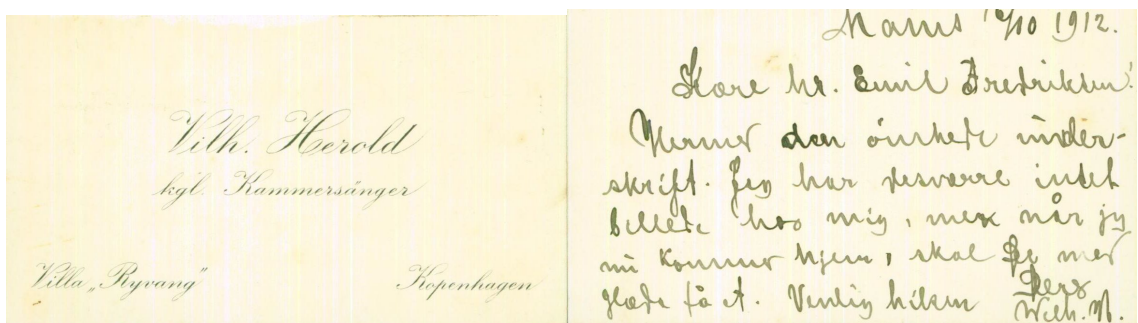 Vilh. Herold
kgl. Kammersänger
Villa „Ryvang"
Kopenhagen
10 1912.
Kære hr. Emil Fredriksen!
den önskede under-
skrift. Jeg har desværre intet
billede hos mig, men når jeg
nu kommer hjem, skal De med
glæde få et. Venlig hilsen Deres
Wilh. H.